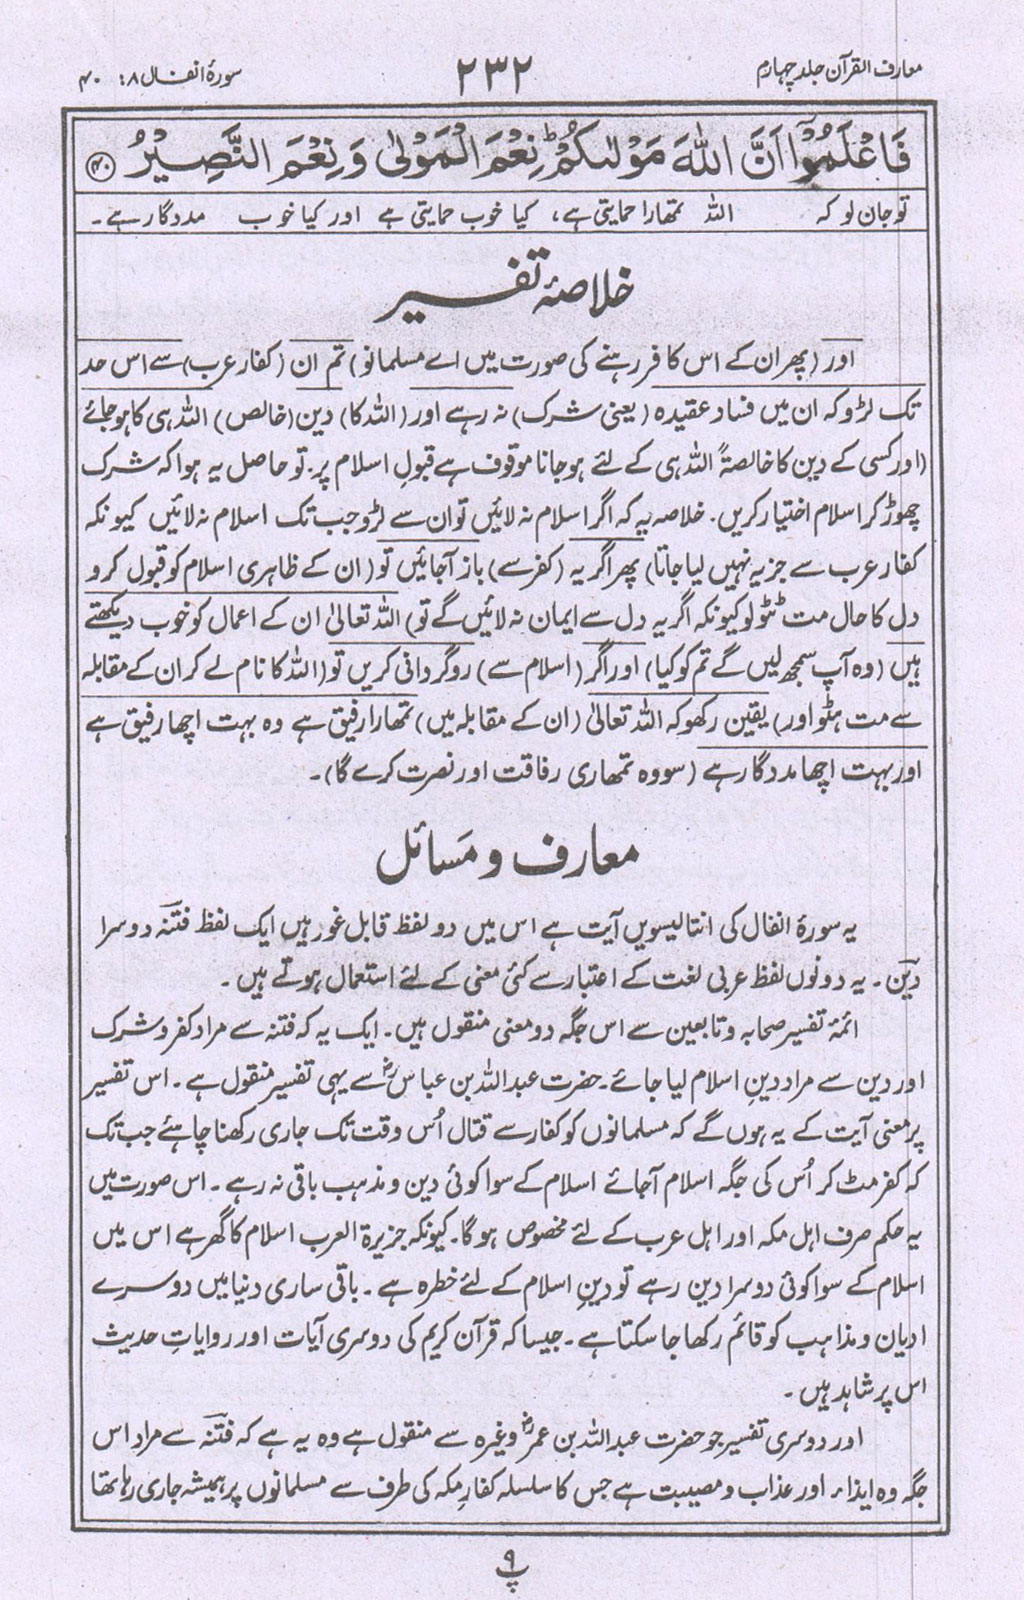 معارف القرآن جلد چہارم ۲۳۲ سورۂ انفال ۸: ۴۰
فَاعْلَمُوْٓا اَنَّ اللّٰهَ مَوْلٰىكُمْ ؕ نِعْمَ الْمَوْلٰى وَ نِعْمَ النَّصِيْرُ ﴿۴۰﴾
تو جان لو کہ اللہ تمھارا حمایتی ہے، کیا خوب حمایتی ہے اور کیا خوب مددگار ہے۔
خلاصۂ تفسیر
اور (پھر ان کے اس کافر رہنے کی صورت میں اے مسلمانو) تم ان (کفار عرب) سے اس حد
تک لڑو کہ ان میں فسادِ عقیدہ (یعنی شرک) نہ رہے اور (اللہ کا) دین (خالص) اللہ ہی کا ہو جائے
(اور کسی کے دین کا خالصۃً اللہ ہی کے لئے ہو جانا موقوف ہے قبولِ اسلام پر۔ تو حاصل یہ ہوا کہ شرک
چھوڑ کر اسلام اختیار کریں۔ خلاصہ یہ کہ اگر اسلام نہ لائیں تو ان سے لڑو جب تک اسلام نہ لائیں کیونکہ
کفار عرب سے جزیہ نہیں لیا جاتا) پھر اگر یہ (کفر سے) باز آجائیں تو (ان کے ظاہری اسلام کو قبول کرو
دل کا حال مت ٹٹولو کیونکہ اگر یہ دل سے ایمان نہ لائیں گے تو) اللہ تعالیٰ ان کے اعمال کو خوب دیکھتے
ہیں (وہ آپ سمجھ لیں گے تم کو کیا) اور اگر (اسلام سے) روگردانی کریں تو (اللہ کا نام لے کر ان کے مقابلہ
سے مت ہٹو اور) یقین رکھو کہ اللہ تعالیٰ (ان کے مقابلہ میں) تمھارا رفیق ہے وہ بہت اچھا رفیق ہے
اور بہت اچھا مددگار ہے (سو وہ تمھاری رفاقت اور نصرت کرے گا)۔
معارف و مَسائل
یہ سورۂ انفال کی انتالیسویں آیت ہے اس میں دو لفظ قابل غور ہیں ایک لفظ فتنہ دوسرا
دین۔ یہ دونوں لفظ عربی لغت کے اعتبار سے کئی معنی کے لئے استعمال ہوتے ہیں۔
ائمۂ تفسیر صحابہ و تابعین سے اس جگہ دو معنی منقول ہیں۔ ایک یہ کہ فتنہ سے مراد کفر و شرک
اور دین سے مراد دینِ اسلام لیا جائے۔ حضرت عبداللہ بن عباسؓ سے یہی تفسیر منقول ہے۔ اس تفسیر
پر معنی آیت کے یہ ہوں گے کہ مسلمانوں کو کفار سے قتال اُس وقت تک جاری رکھنا چاہئے جب تک
کہ کفر مٹ کر اُس کی جگہ اسلام آجائے اسلام کے سوا کوئی دین و مذہب باقی نہ رہے۔ اس صورت میں
یہ حکم صرف اہل مکہ اور اہل عرب کے لئے مخصوص ہوگا۔ کیونکہ جزیرۃ العرب اسلام کا گھر ہے اس میں
اسلام کے سوا کوئی دوسرا دین رہے تو دینِ اسلام کے لئے خطرہ ہے۔ باقی ساری دنیا میں دوسرے
ادیان و مذاہب کو قائم رکھا جا سکتا ہے۔ جیسا کہ قرآن کریم کی دوسری آیات اور روایاتِ حدیث
اس پر شاہد ہیں۔
اور دوسری تفسیر جو حضرت عبداللہ بن عمرؓ وغیرہ سے منقول ہے وہ یہ ہے کہ فتنہ سے مراد اس
جگہ وہ ایذاء اور عذاب و مصیبت ہے جس کا سلسلہ کفارِ مکہ کی طرف سے مسلمانوں پر ہمیشہ جاری رہا تھا
پ ۹